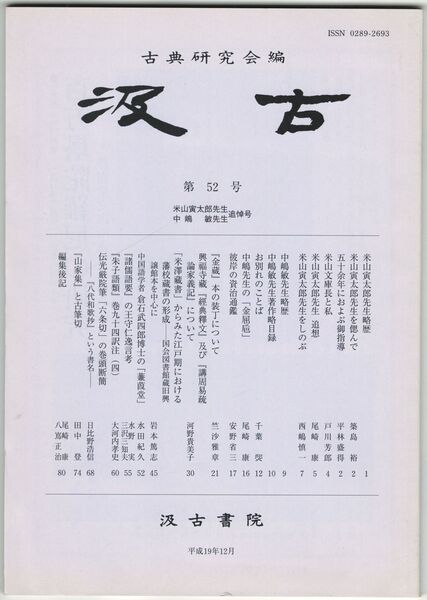 ISSN 0289-2693
古典研究会編
汲古
第 52 号
米山寅太郎先生
中嶋 敏先生
追悼号
米山寅太郎先生略歴 1
米山寅太郎先生を偲んで 築島 裕 2
五十余年におよぶ御指導 平林盛得 2
米山文庫長と私 戸川芳郎 4
米山寅太郎先生 追想 尾崎 康 5
米山寅太郎先生をしのぶ 西嶋慎一 7
中嶋敏先生略歴 9
中嶋敏先生著作略目録 10
お別れのことば 千葉 焈 12
中嶋先生の「金屈卮」 尾崎 康 16
彼岸の資治通鑑 安野省三 17
『金蔵』本の装丁について 竺沙雅章 21
興福寺蔵『経典釋文』及び『講周易疏
論家義記』について 河野貴美子 30
「米澤蔵書」からみた江戸期における
藩校蔵書の形成――国会図書館蔵旧興
讓館本を中心に 岩本篤志 45
中国語学者 倉石武四郎博士の「蒹葭堂」 水田紀久 52
『諸儒語要』の王守仁逸言考 水野 実
三沢三知夫 55
『朱子語類』巻九十四訳注（四） 大河内孝史 60
伝光厳院筆「六条切」の巻頭断簡
――『八代和歌抄』という書名―― 日比野浩信 68
『山家集』と古筆切 田中 登 74
編集後記 尾崎 康
八嶌正治 80
汲古書院
平成19年12月